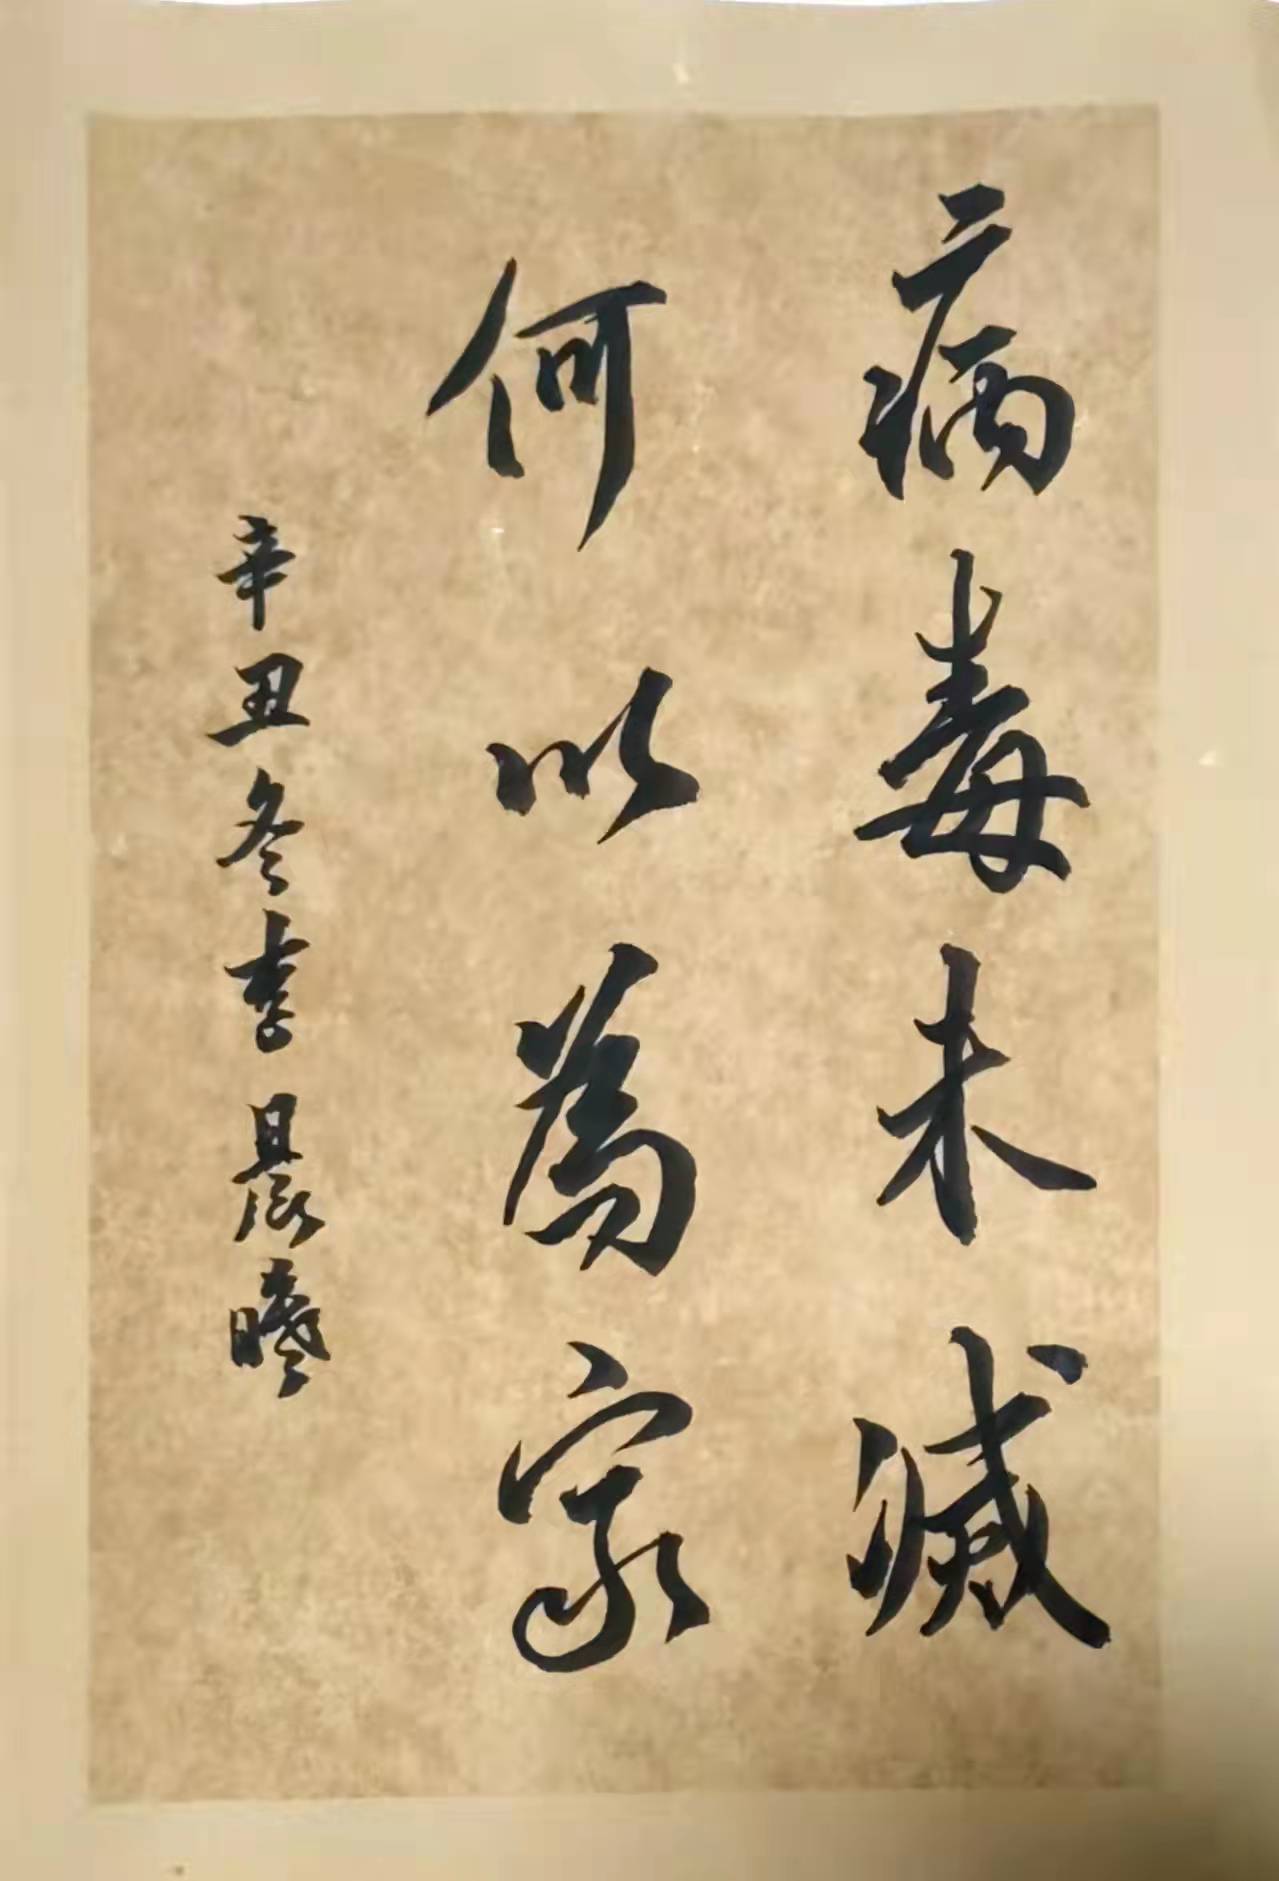 病毒未滅
何以為家
辛丑冬李晨曦